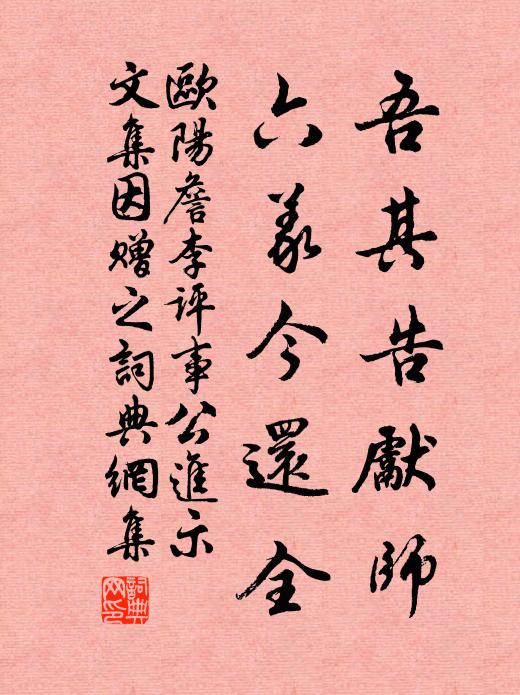 吾其告獻師
六義今還全
歐陽詹李評事公進示
文集因贈之詞典網集